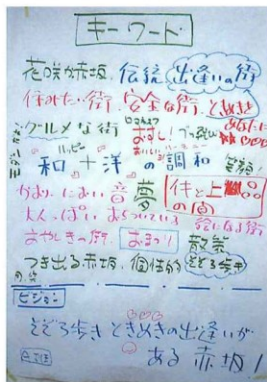 キーワード
花咲か赤坂 伝統 出逢いの街
住みたい街 安全な街 ときめき
グルメな街 おすし!
和+洋の調和 笑顔!
かおり におい 音 夢 粋と上品の間
大人っぽい おちついている 絵になる街
おやしきの街 おまつり 散策
つき出る赤坂 個性的 そぞろ歩き
ビジョン
そぞろ歩きときめきの出逢いが
ある 赤坂!